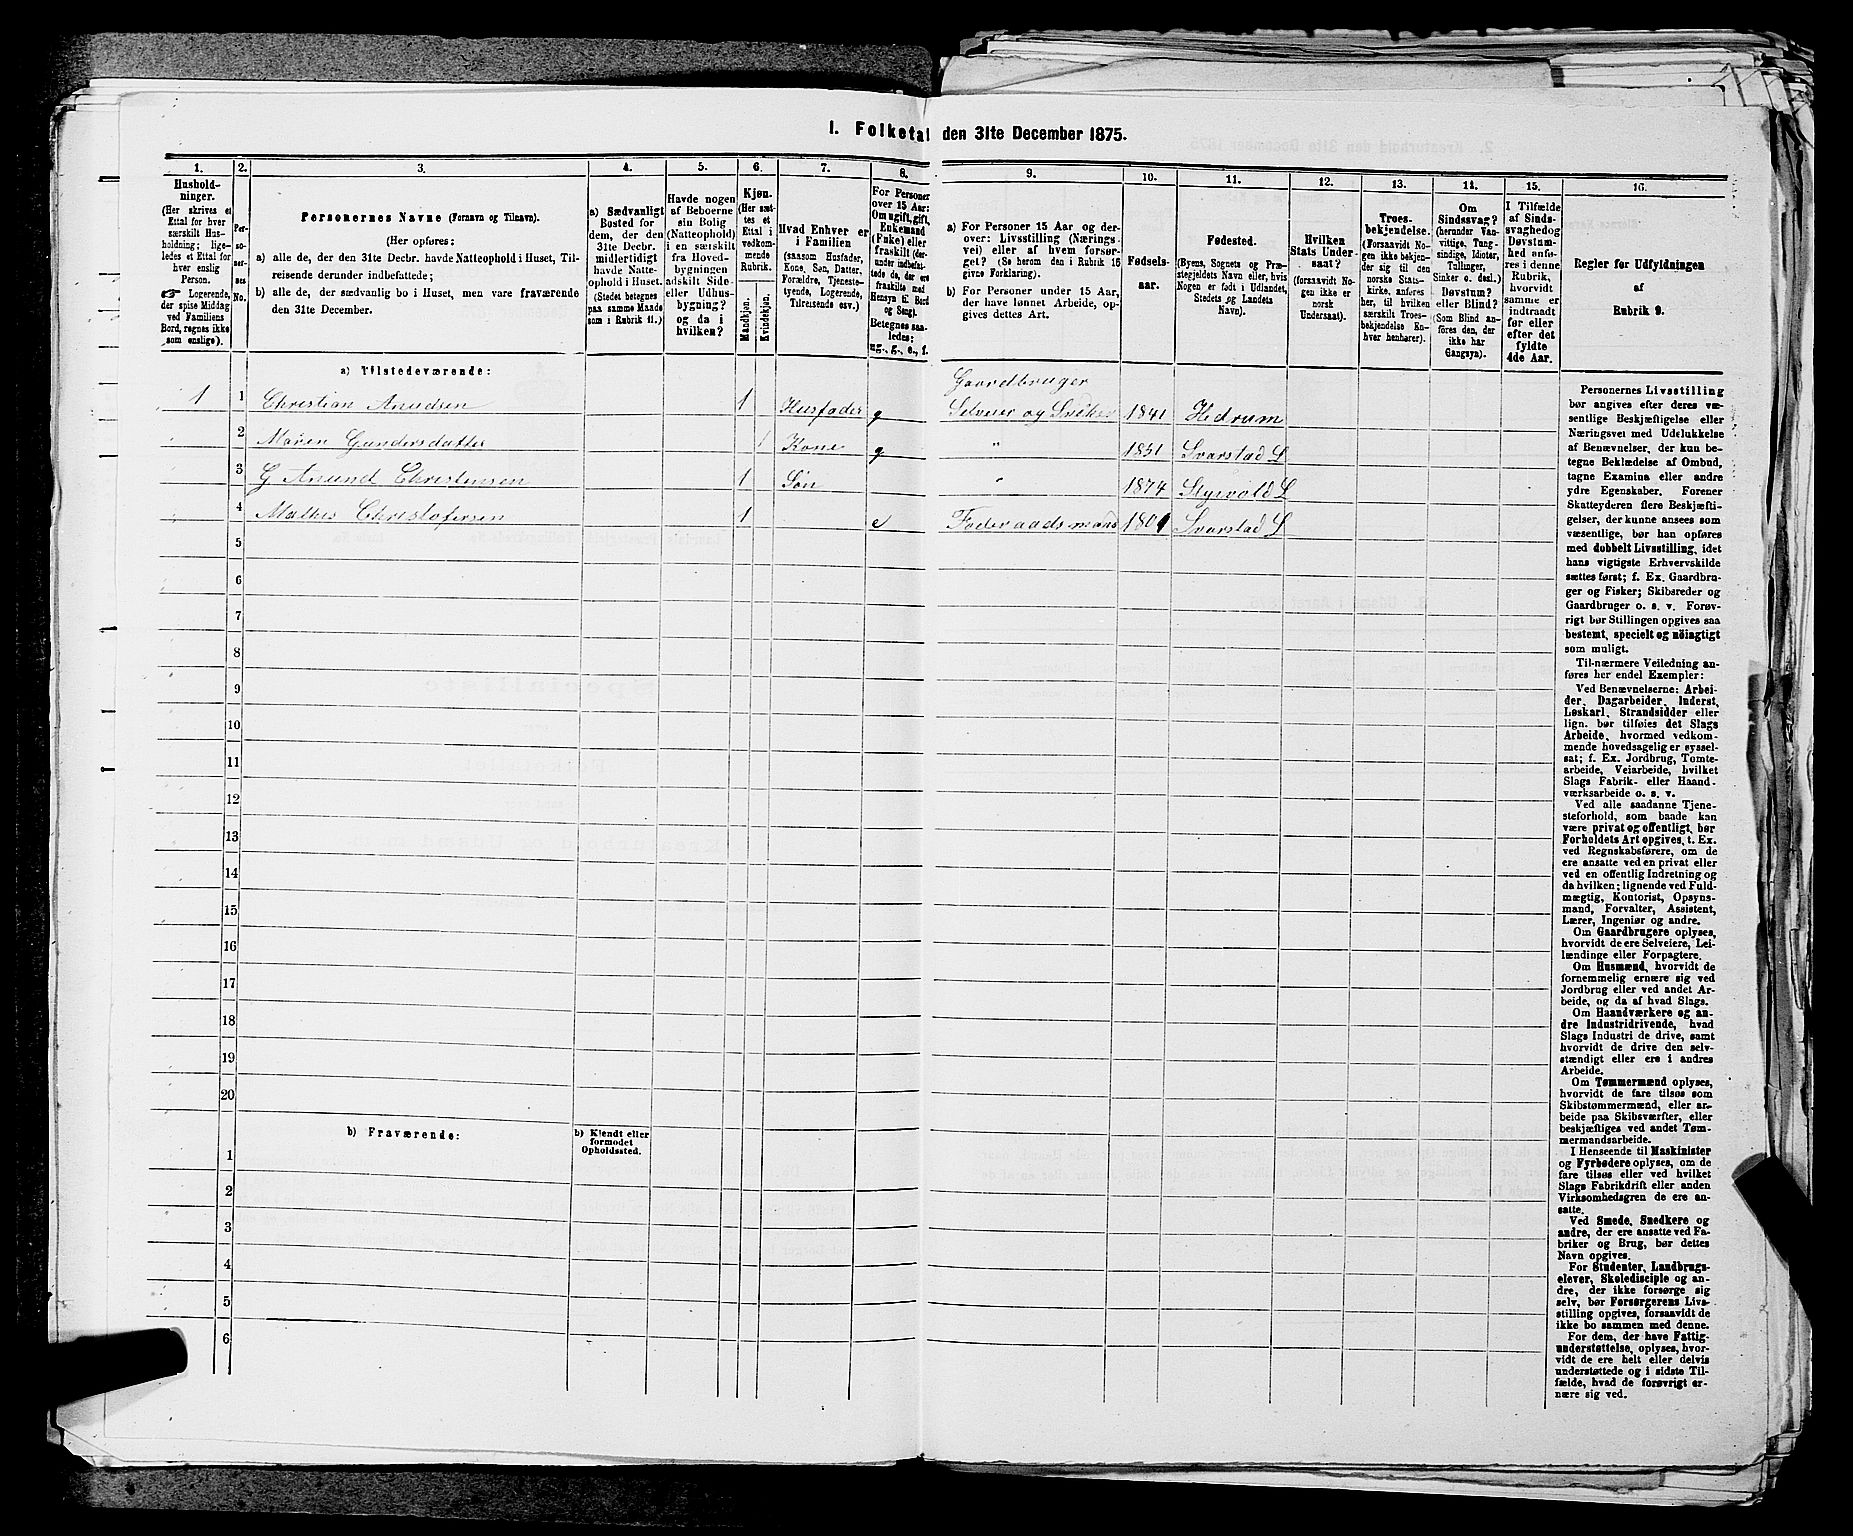 I. Folketal den 31te December 1875.
1. 2. 3. 4. 5. 6. 7. 8. 9. 10. 11. 12. 13. 14. 15. 16.
Hushold-
ninger.
(Her skrives et
Ettal for hver
særskilt Hus-
holdning; lige-
ledes et Ettal for
hver enslig
Person.
☛ Logerende,
der spise Middag
ved Familiens
Bord, regnes ikke
som enslige).
Per-
so-
ner-
nes
No.
Personernes Navne (Fornavn og Tilnavn).
(Her opføres:
a) alle de, der den 31te Decbr. havde Natteophold i Huset, Til-
reisende derunder indbefattede;
b) alle de, der sædvanlig bo i Huset, men vare fraværende
den 31te December.
a) Sædvanligt
Bosted for
dem, der den
31te Decbr.
midlertidigt
havde Natte-
ophold i Huset.
(Stedet betegnes
paa samme Maade
som i Rubrik 11.)
Havde nogen
af Beboerne
sin Bolig
(Natteophold)
i en særskilt
fra Hoved-
bygningen
adskilt Side-
eller Udhus-
bygning?
og da i
hvilken?
Kjøn.
(Her sæt-
tes et
Ettal i
vedkom-
mende
Rubrik.
Mandkjøn.
Kvindekjøn.
Hvad Enhver er
i Familien
(saasom Husfader,
Kone, Søn, Datter,
Forældre, Tjeneste-
tyende, Logerende,
Tilreisende osv.)
For Personer
over 15 Aar:
Om ugift, gift,
Enkemand
(Enke) eller
fraskilt (der-
under indbefat-
tede de, der ere
fraskilte med
Hensyn til Bord
og Seng).
Betegnes saa-
ledes:
ug., g., e., f.
a) For Personer 15 Aar og der-
over: Livsstilling (Nærings-
vei) eller af hvem forsør-
get? (Se herom den i Rubrik 16
givne Forklaring).
b) For Personer under 15 Aar,
der have lønnet Arbeide, op-
gives dettes Art.
Fødsels-
aar.
Fødested.
(Byens, Sognets og Præ-
stegjeldets Navn eller, hvis
Nogen er født i Udlandet,
Stedets og Landets
Navn).
Hvilken
Stats Under-
saat?
(forsaavidt No-
gen ikke er
norsk
Undersaat).
Troes-
bekjendelse.
(Forsaavidt No-
gen ikke bekjen-
der sig til den
norske Stats-
kirke, anføres
her, til hvilken
særskilt Troes-
bekjendelse En-
hver henhører).
Om
Sindssvag?
(herunder Van-
vittige, Tung-
sindige, Idioter,
Tullinger,
Sinker o. desl.)
Døvstum?
eller Blind?
(Som Blind an-
føres den, der
ikke har
Gangsyn).
I Tilfælde
af Sinds-
svaghed og
Døvstum-
hed anfø-
res i denne
Rubrik,
hvorvidt
samme er
indtraadt
før eller
efter det
fyldte
4de Aar.
Regler for Udfyldningen
af
Rubrik 9.
a) Tilstedeværende:
Gaardbruger
1 1 Christian Anudsen 1 Husfader g Selveier og 1841 Hedrum
2 Maren Gundersdatter 1 Kone g " 1851 Svarstad L
3 G Anund Christensen 1 Søn " 1874 L
4 Mathis Christofersen 1 e Føderaadsmand Svarstad L
5
6
7
8
9
10
11
12
13
14
15
16
17
18
19
20
b) Fraværende:
b) Kjendt eller
formodet
Opholdssted.
1
2
3
4
5
6
Personernes Livsstilling
bør angives efter deres væ-
sentlige Beskjæftigelse eller
Næringsvei med Udelukkelse
af Benævnelser, der kun be-
tegne Beklædelse af Ombud,
tagne Examina eller andre
ydre Egenskaber. Forener
Skatteyderen flere Beskjæfti-
gelser, der kunne ansees som
væsentlige, bør han opføres
med dobbelt Livsstilling, idet
hans vigtigste Erhvervskilde
sættes først; f. Ex. Gaardbru-
ger og Fisker; Skibsreder og
Gaardbruger o. s. v. Forøv-
rigt bør Stillingen opgives saa
bestemt, specielt og nöiagtigt
som muligt.
Til nærmere Veiledning an-
føres her endel Exempler:
Ved Benævnelserne: Arbei-
der, Dagarbeider, Inderst,
Løskarl, Strandsidder eller
lign. bør tilføies det Slags
Arbeide, hvormed vedkom-
mende hovedsagelig er syssel-
sat; f. Ex. Jordbrug, Tomte-
arbeide, Veiarbeide, hvilket
Slags Fabrik- eller Haand-
værksarbeide o. s. v.
Ved alle saadanne Tjene-
steforhold, som baade kan
være privat og offentligt, bør
Forholdets Art opgives, t. Ex.
ved Regnskabsførere, om de
ere ansatte ved en privat eller
ved en offentlig Indretning og
da hvilken; lignende ved Fuld-
mægtig, Kontorist, Opsyns-
mand, Forvalter, Assistent,
Lærer, Ingeniør og andre.
Om Gaardbrugere oplyses,
hvorvidt de ere Selveiere, Lei-
lændinge eller Forpagtere.
Om Husmænd, hvorvidt de
fornemmelig ernære sig ved
Jordbrug eller ved andet Ar-
beide, og da af hvad Slags.
Om Haandværkere og an-
dre Industridrivende, hvad
Slags Industri de drive, samt
hvorvidt de drive den selv-
stændigt eller ere i andres
Arbeide.
Om Tømmermænd oplyses,
hvorvidt de fare tilsøs som
Skibstømmermænd, eller ar-
beide paa Skibsværfter, eller
beskjæftiges ved andet Tøm-
mermandsarbeide.
I Henseende til Maskinister
og Fyrbødere oplyses, om de
fare tilsøs eller ved hvilket
Slags Fabrikdrift eller anden
Virksomhedsgren de ere an-
satte.
Ved Smede, Snedkere og
andre, der ere ansatte ved Fa-
briker og Brug, bør dettes
Navn opgives.
For Studenter, Landbrugs-
elever, Skoledisciple og an-
dre, der ikke forsørge sig
selv, bør Forsørgerens Livs-
stilling opgives, forsaavidt de
ikke bo sammen med denne.
For dem, der have Fattig-
understøttelse, oplyses, hvor-
vidt de ere helt eller delvis
understøttede og i sidste Til-
fælde, hvad de forøvrigt er-
nære sig ved.